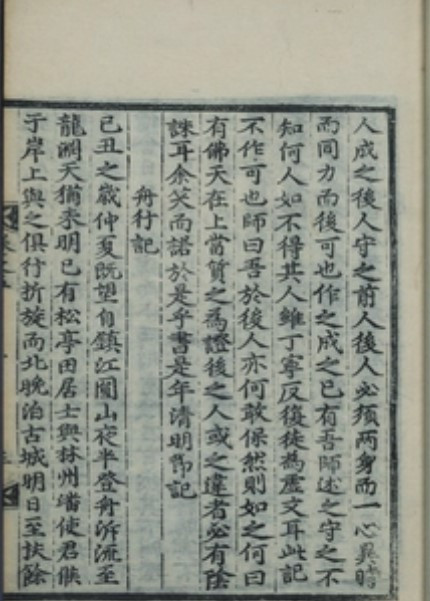 人成之後人守之前人後人必須两身而一心異時
而同力而後可也作之成之已有吾師述之守之不
知何人如不得其人雖丁寧反復徒為虛文耳此記
不作可也師曰吾於後人亦何敢保然則如之何曰
有佛天在上當質之為證後之人或之違者必有陰
誅耳余笑而諾於是乎書是年清明節記
舟行記
己丑之歲仲夏既望自鎮江圌山夜半登舟泝流至
龍淵天猶未明已有松亭田居士與林州墦使君候
于岸上與之俱行折旋而北晚泊古城明日至扶餘